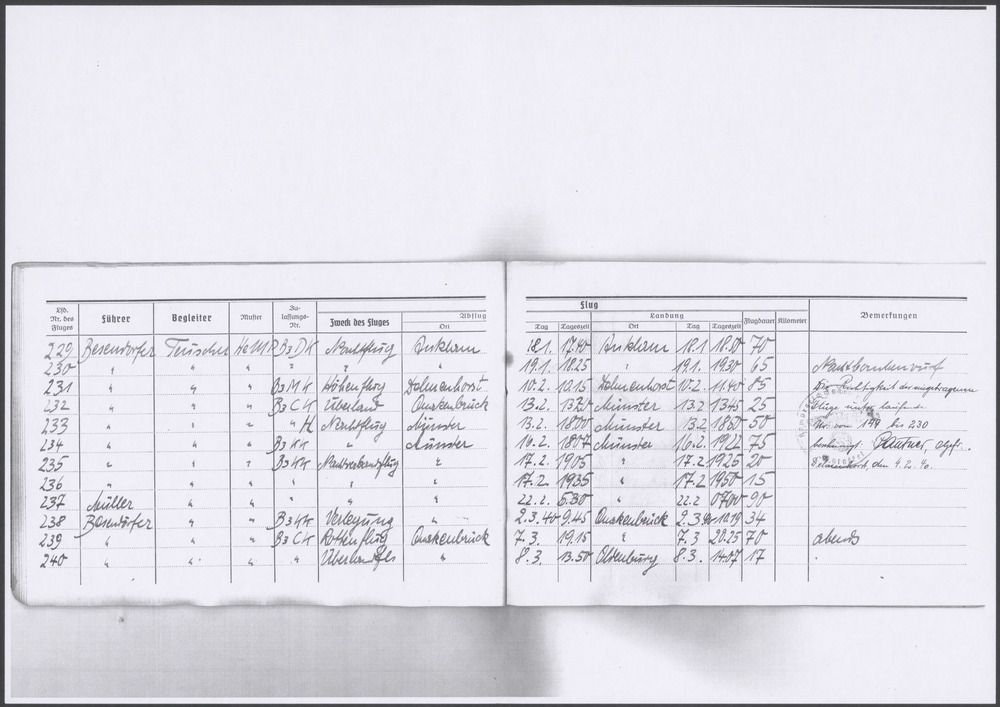 Flug
Lfd. Nr. des Fluges Führer Begleiter Muster Zulassungs-Nr. Zweck des Fluges Abflug Ort Tag Tageszeit Landung Ort Tag Tageszeit Flugdauer Kilometer Bemerkungen
229 Besendorfer Teuscher B3DK Nachtflug Anklam 18.1. 17.40 Anklam 18.1 18.50 70
230 " " " " " " " 19.1. 18.25 " 19.1. 19.30 65 Nachtbombenwurf
231 " " " B3MK Höhenflug Delmenhorst 10.2. 10.15 Delmenhorst 10.2. 11.40 85 Die Richtigkeit der eingetragenen
232 " " " B3CK Überland Quakenbrück 13.2. 13.20 Münster 13.2 13.45 25 Flüge unter laufende
233 " " " " H Nachtflug Münster 13.2. 18.00 Münster 13.2 18.50 50 Nr. von 199 bis 230
234 " " " B3KK " Münster 16.2. 18.07 Münster 16.2. 19.22 75 bescheinigt.
235 " " " B3KK Nachtverbandsflug " 17.2. 19.05 " 17.2 19.25 20 Delmenhorst, den 9.2.40.
236 " " " " " " 17.2. 19.35 " 17.2 19.50 15
237 Müller " " " " " 22.2. 5.30 " 22.2 07.00 90
238 Besendorfer " " B3KK Verlegung " 2.3.40 9.45 Quakenbrück 2.3. 10.19 34
239 " " " B3CK Rottenflug Quakenbrück 7.3. 19.15 " 7.3 20.25 70 abends
240 " " " " " 8.3. 13.50 Oldenburg 8.3. 14.07 17 "